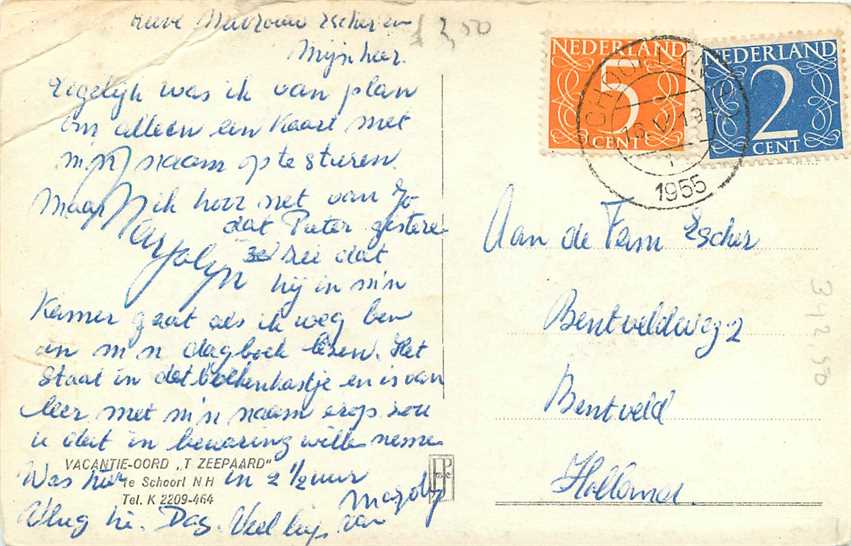 Lieve Mevrouw Escher en
Mijnheer.
Eigelijk was ik van plan
om alleen een kaart met
mijn naam op te sturen
Maar ik hoor net van Jo
dat Pieter gisteren
zei dat
Marjolijn
hij in m'n
Kamer gaat als ik weg ben
en m'n dagboek lezen. Het
Staat in dat boekenkastje en is van
leer met m'n naam erop zou
u dat in bewaring willen nemen
Was hier in 2 1/2 uur
Vlug hè. Dag. Veel liefs van
VACANTIE-OORD „T ZEEPAARD"
te Schoorl N H
Tel. K 2209-464
£ 3,50
NEDERLAND
5
CENT
NEDERLAND
2
CENT
1955
Aan de Fam Escher
Bentveldweg 2
Bentveld
Holland
342.50